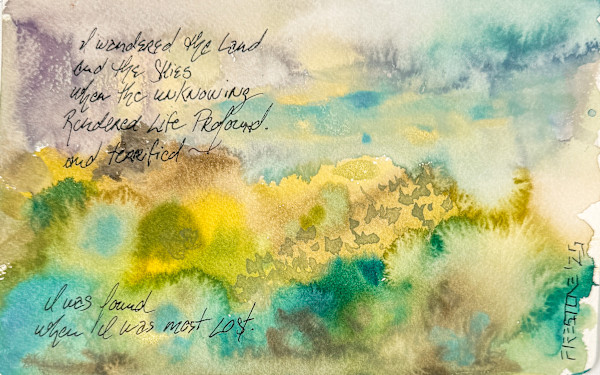 I wandered the Land
and the Skies
when the unknowing
Rendered Life Profound.
and terrified
I was found
when I was most Lost.
FIRESTONE '25